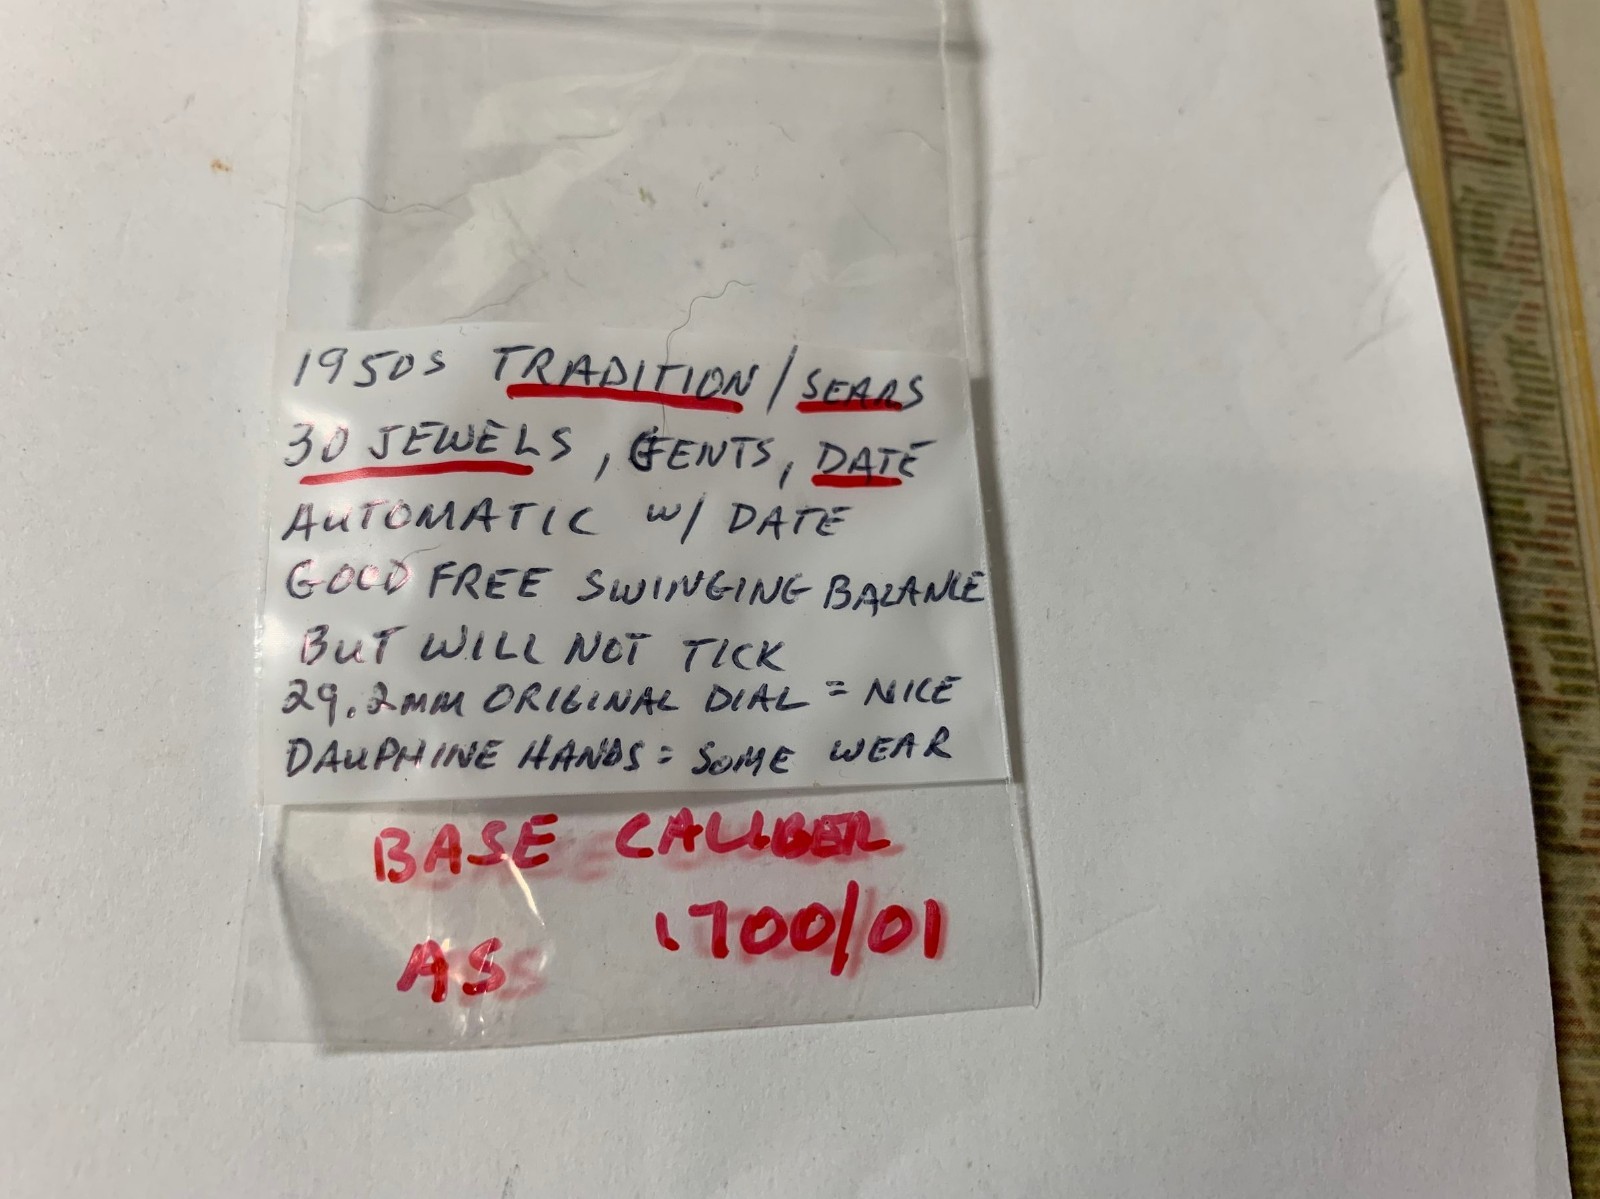 1950s TRADITION / SEARS
30 JEWELS, GENTS, DATE
AUTOMATIC W/ DATE
GOOD FREE SWINGING BALANCE
BUT WILL NOT TICK
29.2MM ORIGINAL DIAL = NICE
DAUPHINE HANDS = SOME WEAR
BASE CALIBER
AS 1700/01